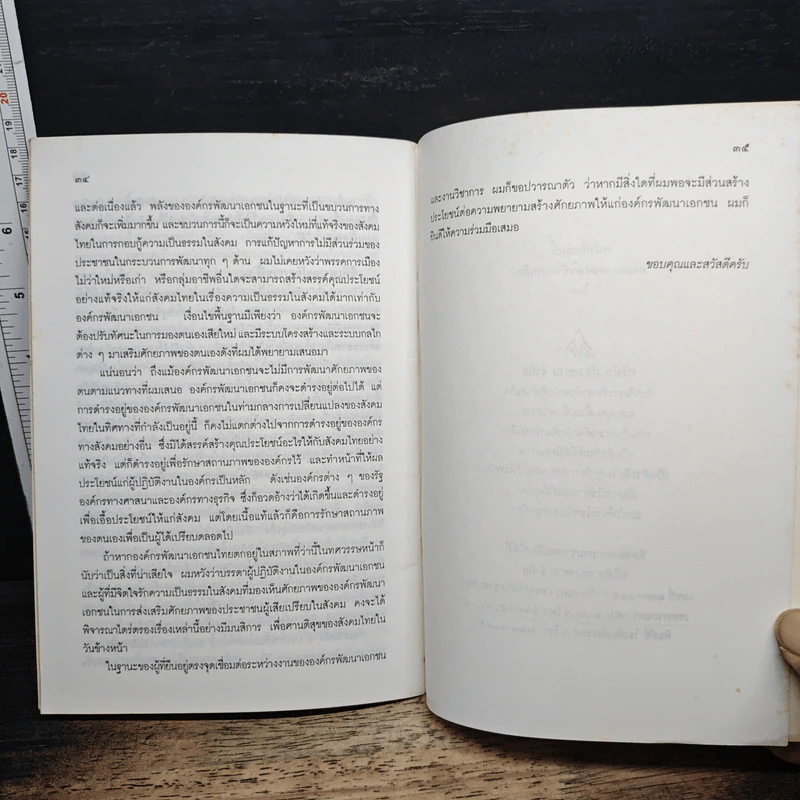 ๓๔
และต่อเนื่องแล้ว พลังขององค์กรพัฒนาเอกชนในฐานะที่เป็นขบวนการทาง
สังคมก็จะเพิ่มมากขึ้น และขบวนการนี้ก็จะเป็นความหวังใหม่ที่แท้จริงของสังคม
ไทยในการกอบกู้ความเป็นธรรมในสังคม การแก้ปัญหาการไม่มีส่วนร่วมของ
ประชาชนในกระบวนการพัฒนาทุก ๆ ด้าน ผมไม่เคยหวังว่าพรรคการเมือง
ไม่ว่าใหม่หรือเก่า หรือกลุ่มอาชีพอื่นใดจะสามารถสร้างสรรค์คุณประโยชน์
อย่างแท้จริงให้แก่สังคมไทยในเรื่องความเป็นธรรมในสังคมได้มากเท่ากับ
องค์กรพัฒนาเอกชน เงื่อนไขพื้นฐานมีเพียงว่า องค์กรพัฒนาเอกชนจะ
ต้องปรับทัศนะในการมองตนเองเสียใหม่ และมีระบบโครงสร้างและระบบกลไก
ต่าง ๆ มาเสริมศักยภาพของตนเองดังที่ผมได้พยายามเสนอมา
แน่นอนว่า ถึงแม้องค์กรพัฒนาเอกชนจะไม่มีการพัฒนาศักยภาพของ
ตนตามแนวทางที่ผมเสนอ องค์กรพัฒนาเอกชนก็คงจะดำรงอยู่ต่อไปได้ แต่
การดำรงอยู่ขององค์กรพัฒนาเอกชนในท่ามกลางการเปลี่ยนแปลงของสังคม
ไทยในทิศทางที่กำลังเป็นอยู่นี้ ก็คงไม่แตกต่างไปจากการดำรงอยู่ขององค์กร
ทางสังคมอย่างอื่น ซึ่งมิได้สรรค์สร้างคุณประโยชน์อะไรให้กับสังคมไทยอย่าง
แท้จริง แต่ก็ดำรงอยู่เพื่อรักษาสถานภาพขององค์กรไว้ และทำหน้าที่ให้ผล
ประโยชน์แก่ผู้ปฏิบัติงานในองค์กรเป็นหลัก ดังเช่นองค์กรต่าง ๆ ของรัฐ
องค์กรทางศาสนาและองค์กรทางธุรกิจ ซึ่งก็อวดอ้างว่าได้เกิดขึ้นและดำรงอยู่
เพื่อเอื้อประโยชน์ให้แก่สังคม แต่โดยเนื้อแท้แล้วก็คือการรักษาสถานภาพ
ของตนเองเพื่อเป็นผู้ได้เปรียบตลอดไป
ถ้าหากองค์กรพัฒนาเอกชนไทยตกอยู่ในสภาพที่ว่านี้ในทศวรรษหน้าก็
นับว่าเป็นสิ่งที่น่าเสียใจ ผมหวังว่าบรรดาผู้ปฏิบัติงานในองค์กรพัฒนาเอกชน
และผู้ที่มีจิตใจรักความเป็นธรรมในสังคมที่มองเห็นศักยภาพขององค์กรพัฒนา
เอกชนในการส่งเสริมศักยภาพของประชาชนผู้เสียเปรียบในสังคม คงจะได้
พิจารณาไตร่ตรองเรื่องเหล่านี้อย่างมีมนสิการ เพื่อศานติสุขของสังคมไทยใน
วันข้างหน้า
ในฐานะของผู้ที่ยืนอยู่ตรงจุดเชื่อมต่อระหว่างงานขององค์กรพัฒนาเอกชน
๓๕
และงานวิชาการ ผมก็ขอปวารณาตัว ว่าหากมีสิ่งใดที่ผมพอจะมีส่วนสร้าง
ประโยชน์ต่อความพยายามสร้างศักยภาพให้แก่องค์กรพัฒนาเอกชน ผมก็
ยินดีให้ความร่วมมือเสมอ
ขอบคุณและสวัสดีครับ
20
19
18
17
16
15
14
13
6
5